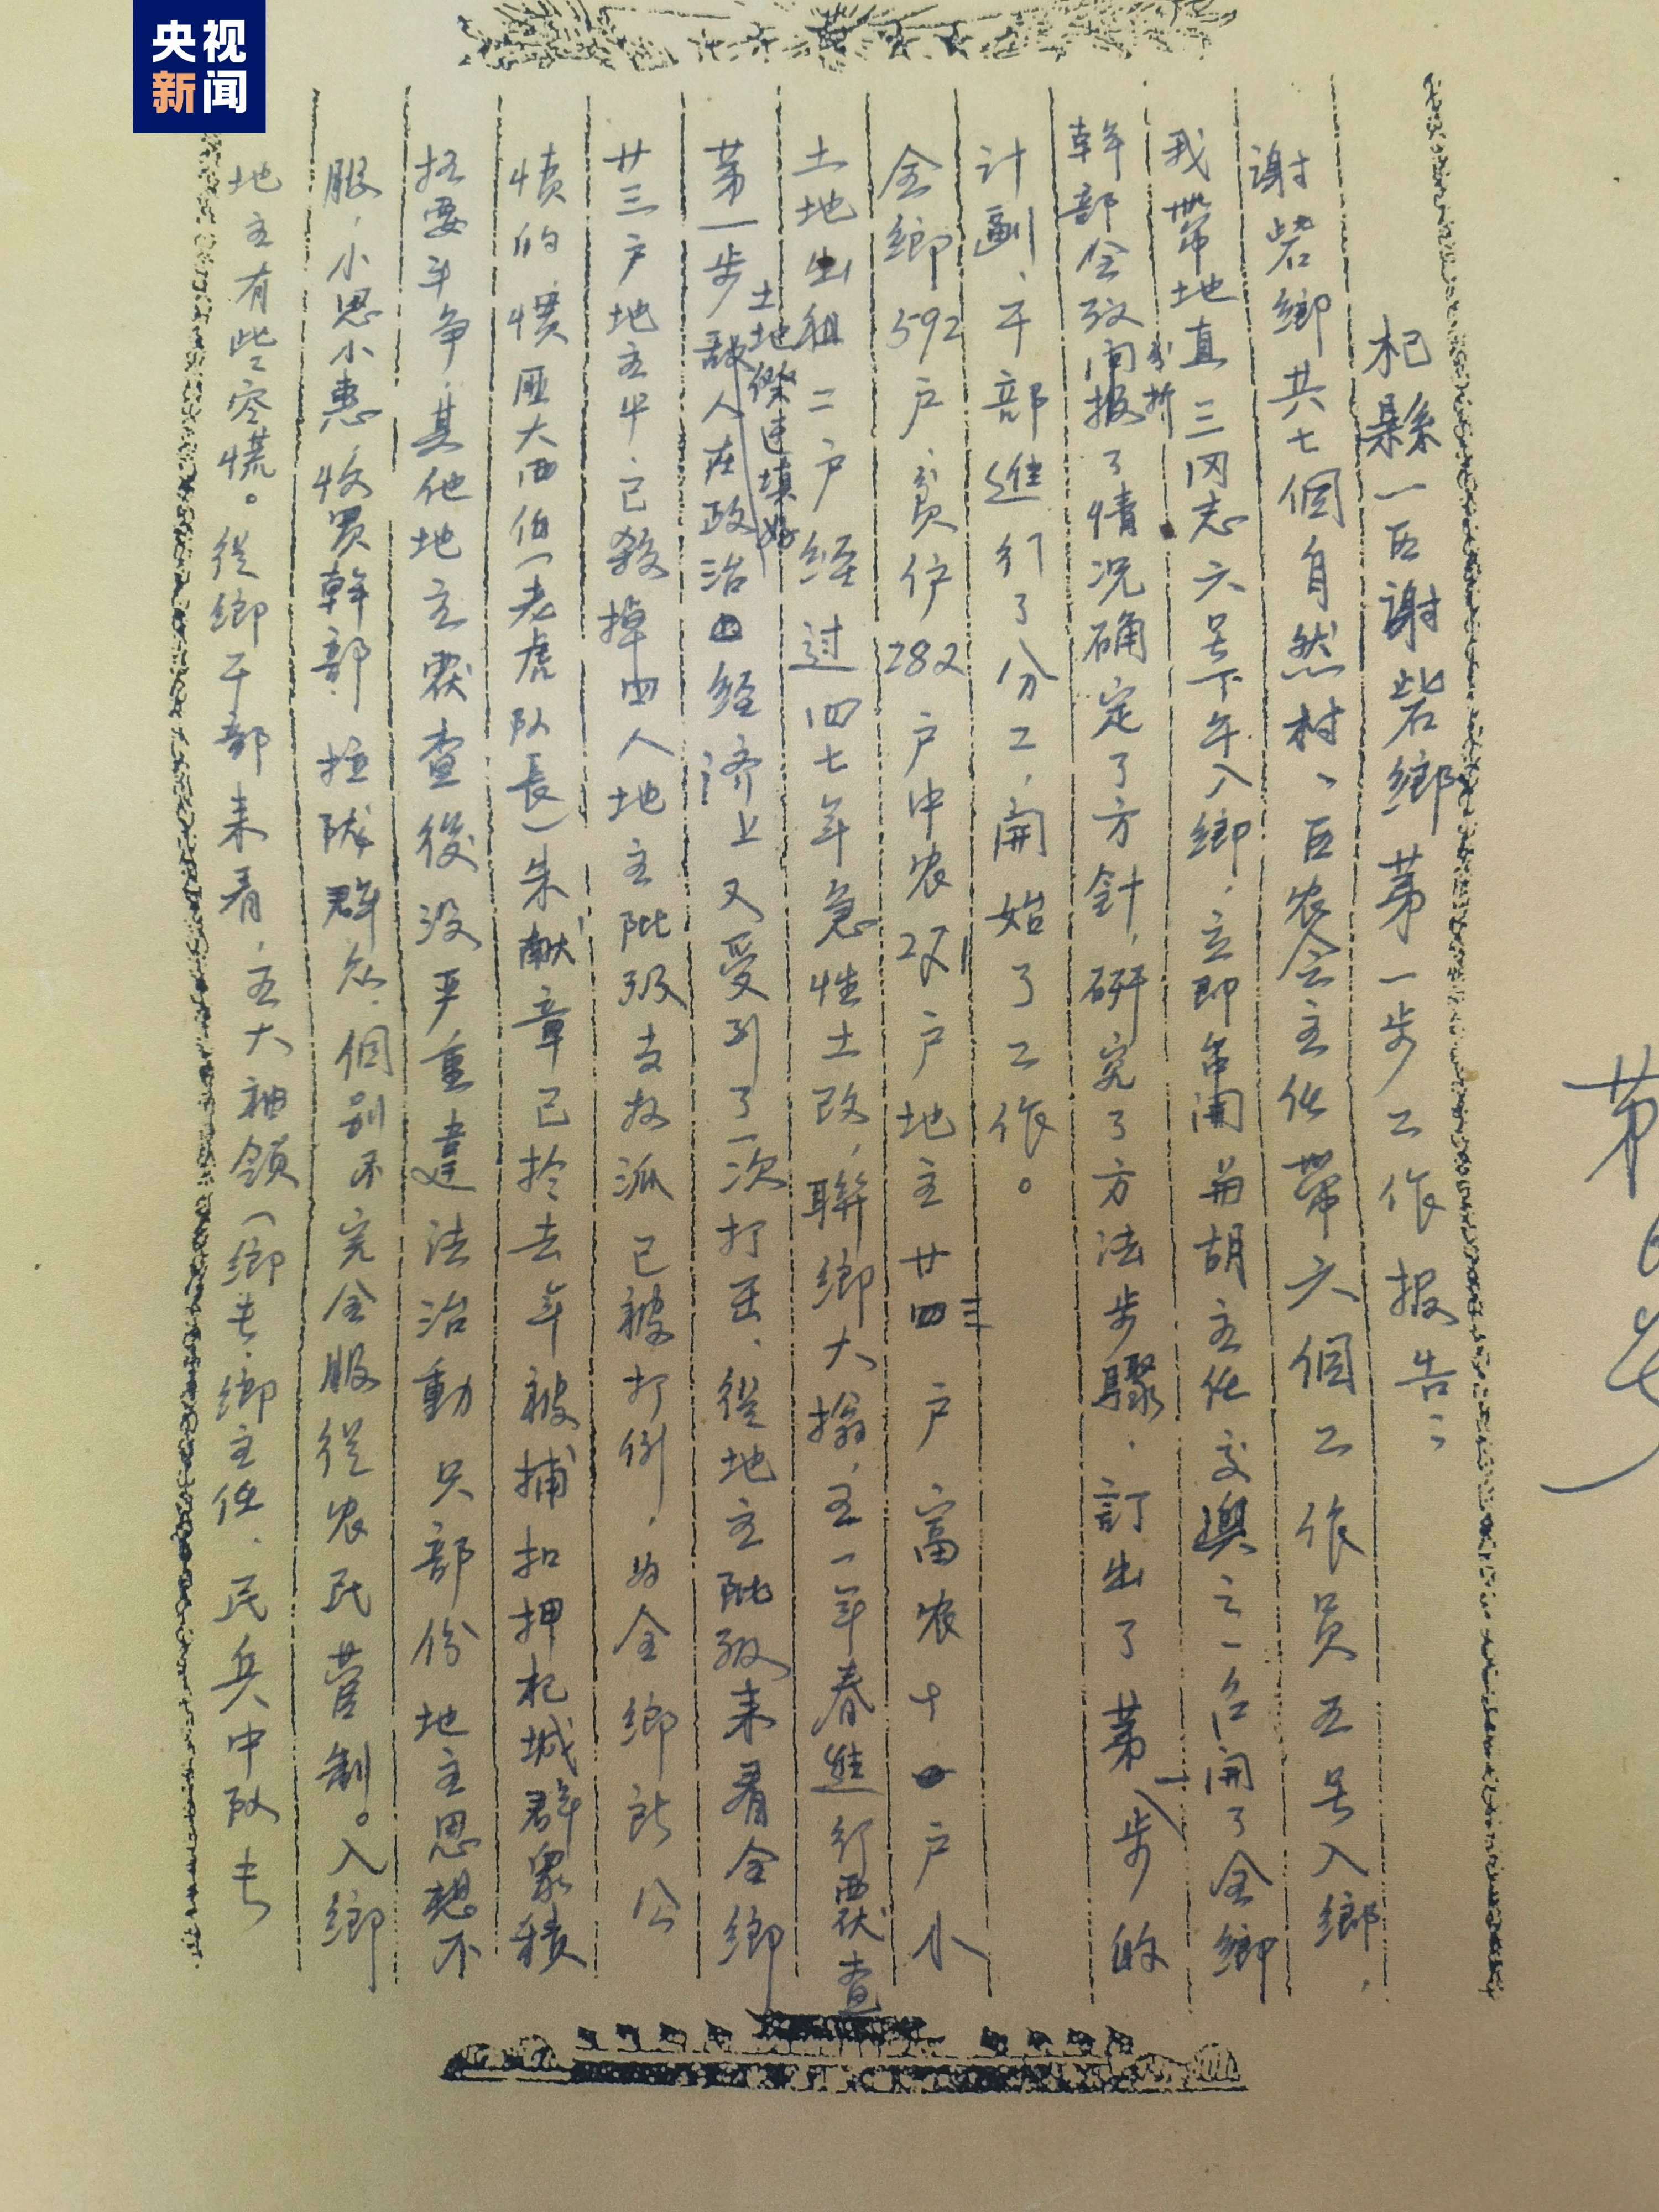 央视
新闻
杞縣一区谢砦鄉第一步工作报告：
谢砦鄉共七個自然村、区农会主任帶六個工作員五号入鄉，
我帶地直三同志六号下午入鄉，立即召開 胡主任交換 一 召開了全鄉
分析
幹部会 报了情况确定了方針，研究了方法步驟，訂出了第一步的
计劃、干部進行了分工，開始了工作。
全鄉592户，貧 282户中农2 1户地主廿三户富农十 户小
土地出租二户经过四七年急性土改，聯鄉大 ，五一年春進行覆查
土地 連填好
第一步 敵人在政治 经济上又受到了一次打击，從地主階级来看全鄉
廿三户地主中，已殺掉四人地主階级支 派已被打倒，如全鄉 公
愤的慣匪大西伯（老虎队長）朱献章已於去年被捕扣押杞城群衆積
极要斗争，其他地主覆查後没严重違法活動只部份地主思想不
服，小恩小惠，收買幹部，拉 群众，個别不完全服從农民管制。入鄉
地主有些 慌。從鄉干部来看，五大袖領（鄉長、鄉主任、民兵中队長
第